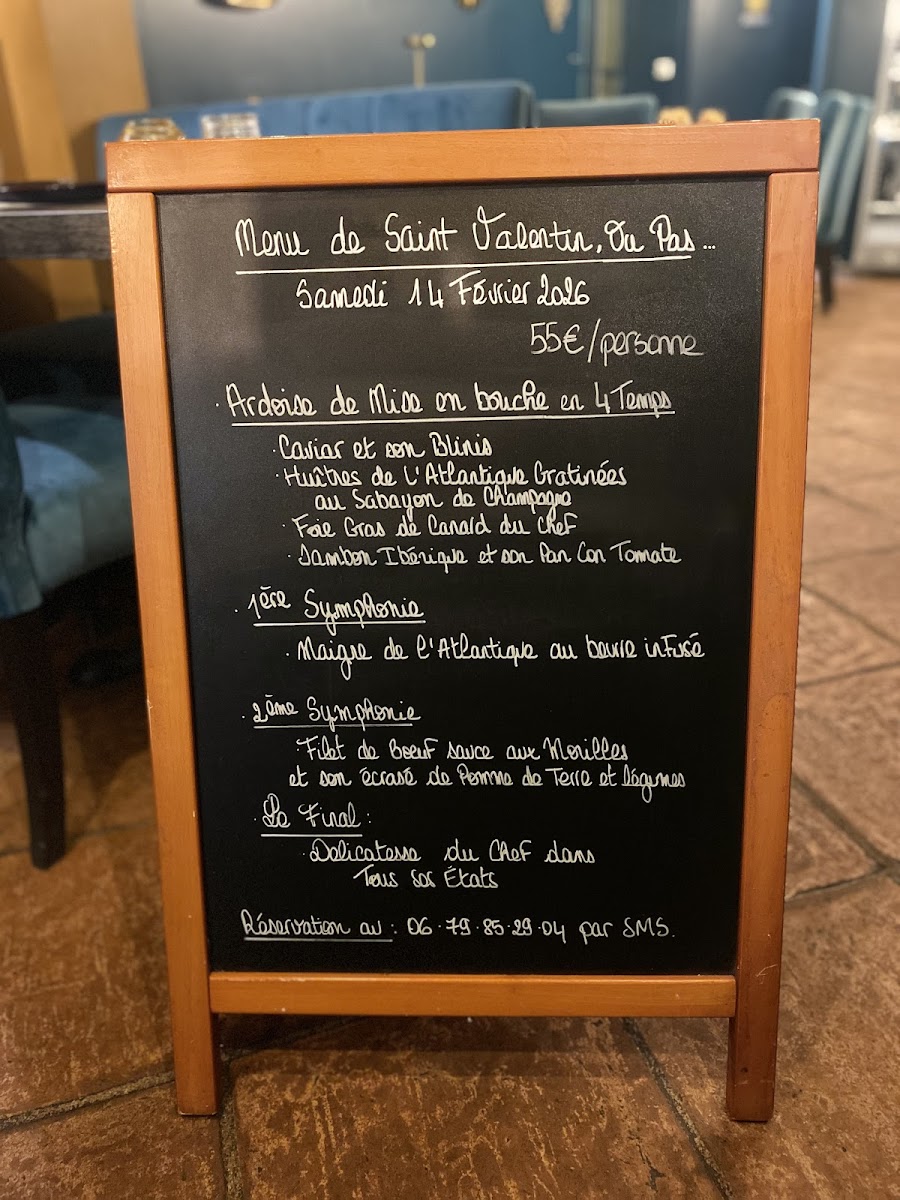 Menu de Saint Valentin, Ou Pas...
Samedi 14 Février 2026
55€/personne
· Ardoise de Mise en bouche en 4 Temps
· Caviar et son Blinis
· Huîtres de l'Atlantique Gratinées
au Sabayon de Champagne
· Foie Gras de Canard du Chef
· Jambon Ibérique et son Pan Con Tomate
· 1ère Symphonie
· Maigre de l'Atlantique au beurre infusé
· 2ème Symphonie
· Filet de Boeuf sauce aux Morilles
et son écrasé de Pomme de Terre et légumes
· Le Final :
· Délicatesse du Chef dans
Tous Ses États
Réservation au : 06.79.85.29.04 par SMS.